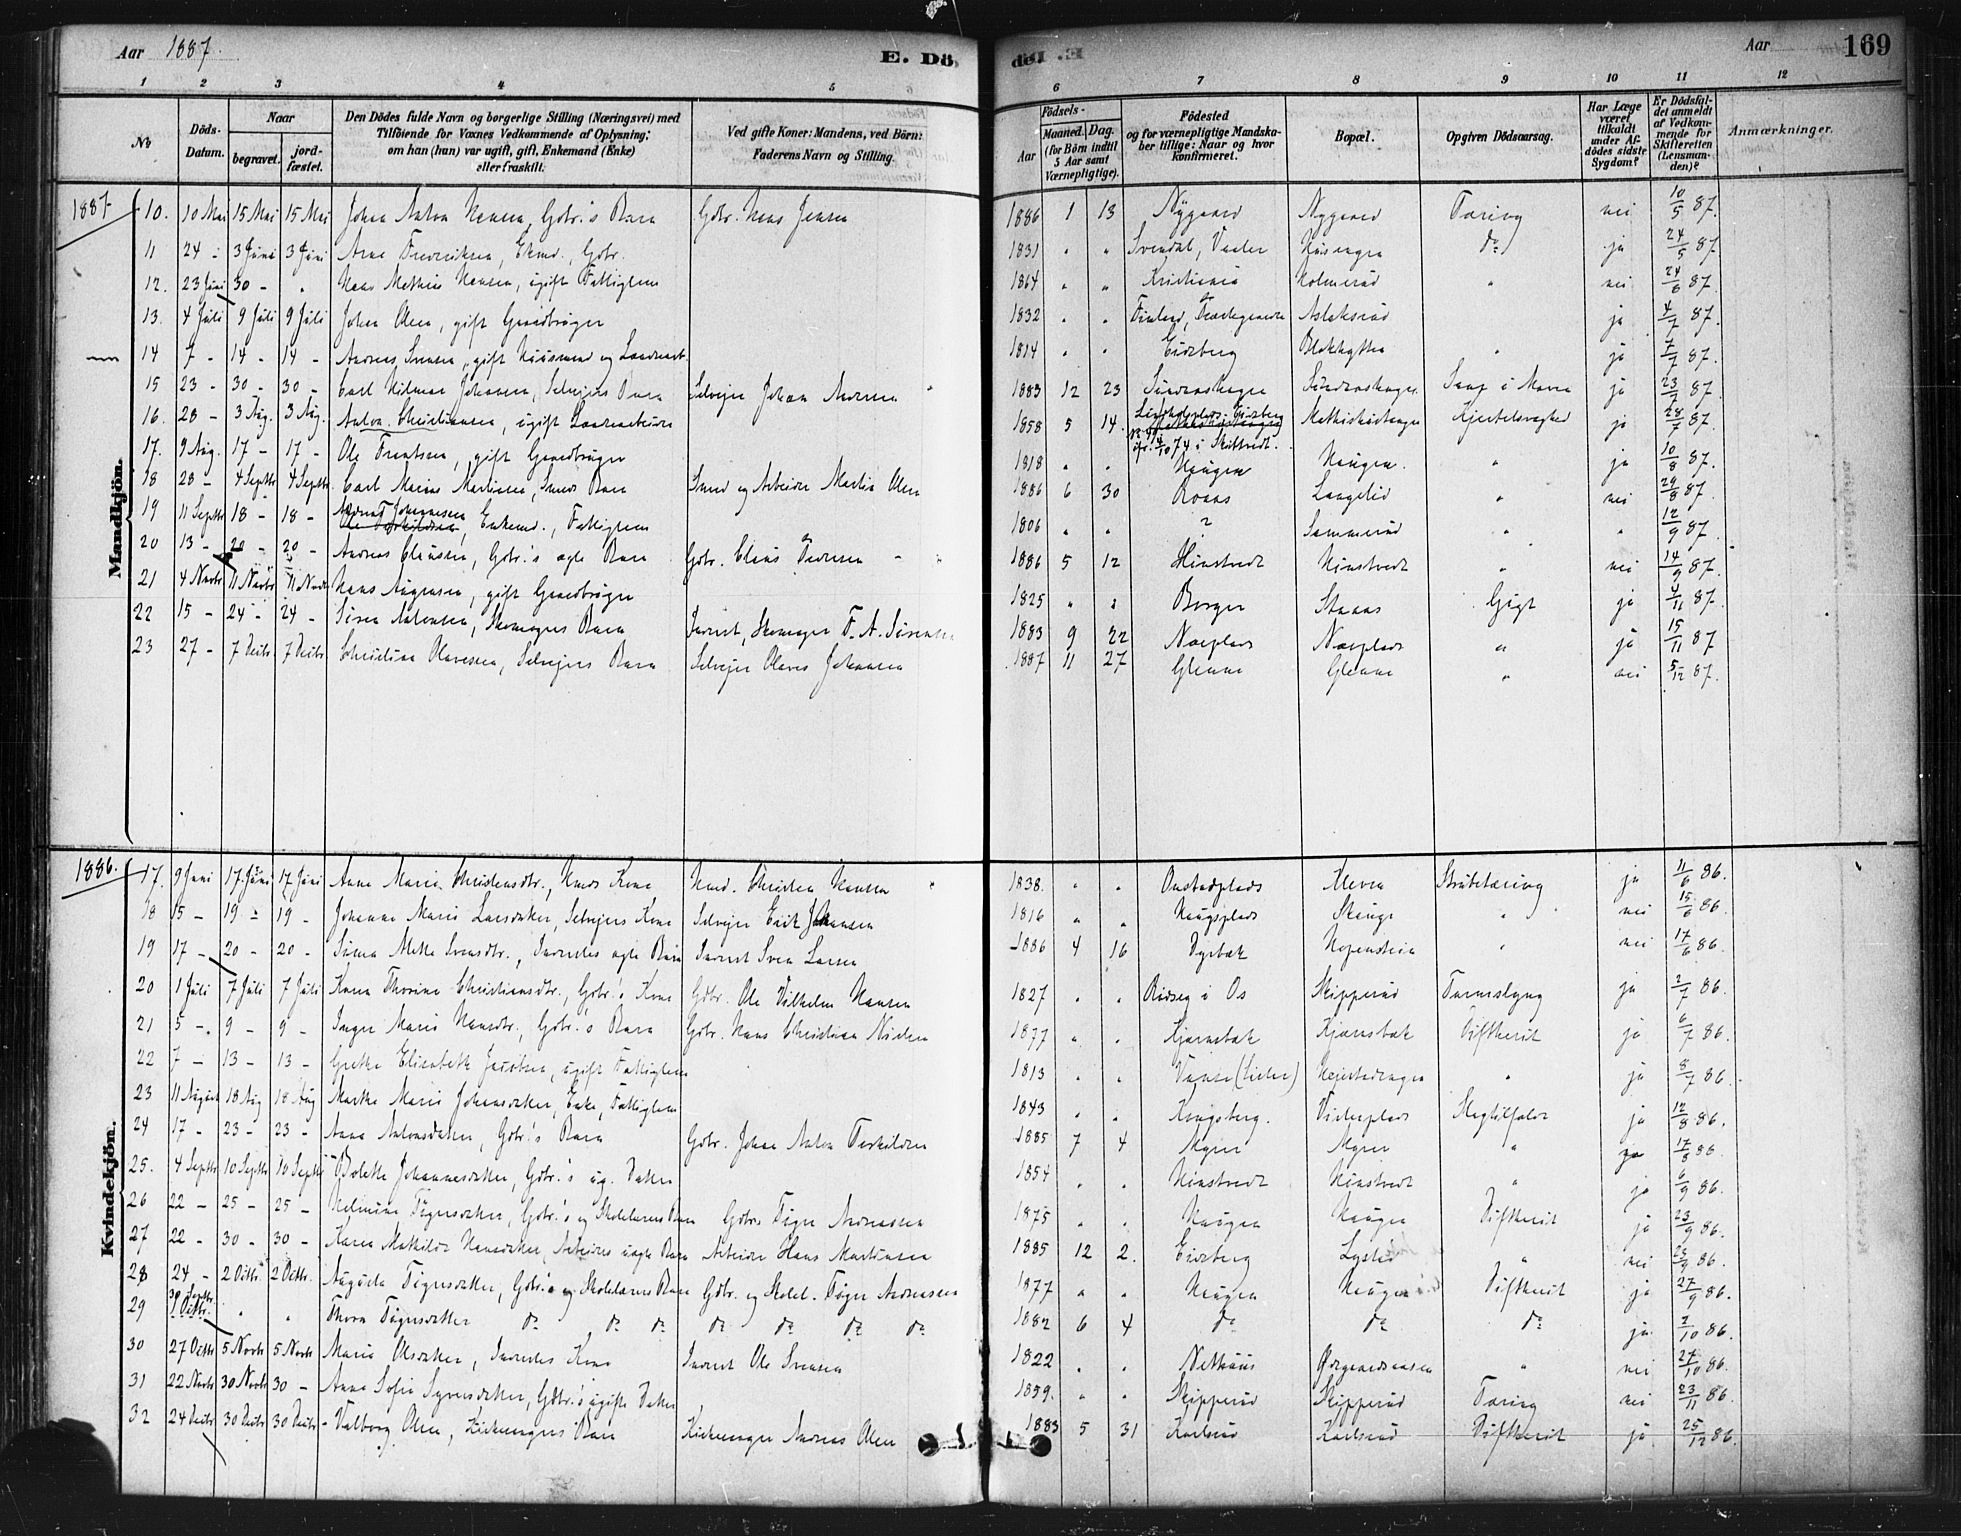 Aar 1887. E. Dö E. Död Aar 169
1 2 3 4 5 6 7 8 9 10 11 12
No
Döds-Datum.
Naar
begravet.
jord-fæstet.
Den Dödes fulde Navn og borgerlige Stilling (Næringsvei) med
Tilföiende for Voxnes Vedkommende af Oplysning;
om han (hun) var ugift, gift, Enkemand (Enke)
eller fraskilt.
Ved gifte Koner: Mandens, ved Börn:
Faderens Navn og Stilling.
Födsels-
Aar
Maaned. Dag.
(for Börn indtil
5 Aar samt
Værnepligtige).
Födested
og for værnepligtige Mandska-
ber tillige: Naar og hvor
konfirmeret.
Bopæl.
Opgiven Dödsaarsag.
Har Læge
været
tilkaldt
under Af-
dödes sidste
Sygdom?
Er Dödsfal-
det anmeldt
af Vedkom-
mende for
Skifteretten
(Lensman-
den)?
Anmærkninger.
Mandkjön.
1887 10. 10 Mai 15 Mai 15 Mai Johan Anton Hansen, Gdbr.'s Barn Gdbr. Hans Jensen 1886 1 13 Nygaard Nygaard Tæring nei 10/5 87.
11 24 - 3 Juni 3 Juni Arne Fredriksen, Ekmd., Gdbr. 1831 " " Svendal, Vaaler do ja 24/5 87
12. 23 Juni 30 - " Hans Mathias Hansen, ugift Fattiglem 1864 " " Kristiania Holmerud " nei 24/6 87.
13. 4 Juli 9 Juli 9 Juli Johan Olsen, gift Gaardbruger 1832 " " Aslaksrud ja 4/7 87.
14 7 - 14 - 14 - Andreas Svensen, gift Huusmand og 1814 " " Eidsberg " ja 7/7 87.
15 23 - 30 - 30 - Carl Hilmar Johansen, Selveiers Barn Selveier Johan 1883 12 23 ja 23/7 87.
16. 28 - 3 Aug. 3 Aug. Anton Christiansen, ugift 1858 5 14. ja 28/7 87.
17. 9 Aug. 17 - 17 - Ole Frantsen, gift Gaardbruger 1818 " " Haugen Haugen. " ja 10/8 87.
18 28 - 4 Septbr 4 Septbr. Carl Marius Martinsen, Smeds Barn Smed og Arbeider Martin Olsen 1886 6 30 Ronas Langelid " nei 29/8 87.
19 11 Septbr 18 - 18 - Johannesen, Enkemd., Fattiglem 1806 " " ? Sammerud " " 12/9 87.
20 13 - 20 - 20 - Andreas Clausen, Gdbr.'s ægte Barn Gdbr. Claus 1886 5 12 Hinstvedt Hinstvedt " nei 14/9 87.
21 4 Novbr 11 Novbr 11 Novbr Hans Augensen, gift Gaardbruger 1825 " " Berger Staaas Gigt ja 4/11 87.
22 15 - 24 - 24 - Sören Antonsen, Skomagers Barn Inderst, Skomager F. A. Sörensen 1883 9 22 Næsplads Næsplads " ja 15/11 87
23 27 - 7 Decbr 7 Decbr Christian Olavesen, Selveiers Barn Selveier Olaves Johansen 1887 11 27 Glenne Glenne " nei 5/12 87.
Kvindekjön.
1886. 17. 9 Juni 17 Juni 17 Juni Anne Marie Christensdtr., Hmds Kone Hmd. Christen Hansen 1838. " " Onstadplads Kleven Strubetæring ja 11/6 86.
18 15 - 19 - 19 - Johanne Marie Larsdatter, Selveiers Kone Selveier Erik Johansen 1816 " " Haugsplads " nei 15/6 86.
19 17 - 20 - 20 - Mette Svensdtr., Inderstes ægte Barn Inderst Sven Larsen 1886 4 16 Dyrbæk " nei 17/6 86.
20 1 Juli 7 Juli 7 Juli Karen Thorine Christiansdtr., Gdbr.'s Kone Gdbr. Ole Vilhelm Hansen 1827 " " Skipperud Tarmslyng ja 2/7 86.
21 5 - 9 - 9 - Inger Marie Hansdtr., Gdbr.'s Barn Gdbr. Hans Christian Nielsen 1877 " " Kjærnsbæk Kjærnsbæk Diftherit ja 6/7 86.
22 7 - 13 - 13 - Grethe Elisabeth Jacobsen, ugift Fattiglem 1813 " " " ja 8/7 86.
23 11 August 18 Aug 18 Aug Marthe Marie Johansdatter, Enke, Fattiglem 1843 " " Kongsberg. Slagtilfælde ja 12/8 86.
24 17 - 23 - 23 - Anna Antonsdatter, Gdbr.'s Barn Gdbr. Johan Anton Torkildsen 1885 7 4 Myrer Myrer " ja 17/8 86.
25. 4 Septbr 10 Septbr 10 Septbr Bolette Johannesdatter, Gdbr.'s ug. Datter 1854 " " Hinstvedt Hinstvedt " ja 6/9 86.
26 22 - 25 - 25 - Helmine Tögersdatter, Gdbr.'s og Skolelærers Barn Gdbr. Töger Andreassen 1875 " " Haugen Haugen Diftherit ja 23/9 86.
27 22 - 30 - 30 - Karen Mathilde Hansdatter, Arbeiders uægte Barn Arbeider Hans Martinsen 1885 12 2. Eidsberg Lysted " nei 23/9 86.
28 24 - 2 Octbr. 2 Octbr. Augusta Tögersdatter, Gdbr.'s og Skolelærers Barn Gdbr. og Skolel. Töger Andreassen 1877 " " Haugen Haugen Diftherit ja 27/9 86.
29 30 Septbr. 1 Octbr. " " Thora Tögersdatter do do do do do do do 1882 6 4 do do do ja 2/10 86.
30 27 Octbr 5 Novbr 5 Novbr Maria Olsdatter, Inderstes Kone Inderst Ole Svensen 1822 " " " nei 27/10 86.
31 22 Novbr 30 Novbr 30 - Anne Sofie Syversdatter, Gdbr.'s ugifte Datter 1859. " " Skipperud Skipperud Tæring nei 23/11 86.
32 24 Decbr 30 Decbr 30 Decbr - Valborg Olsen, Kirkesangers Barn Kirkesanger Andreas Olsen 1883 5 31 Karlsrud Karlsrud Diftherit ja 25/12 86.